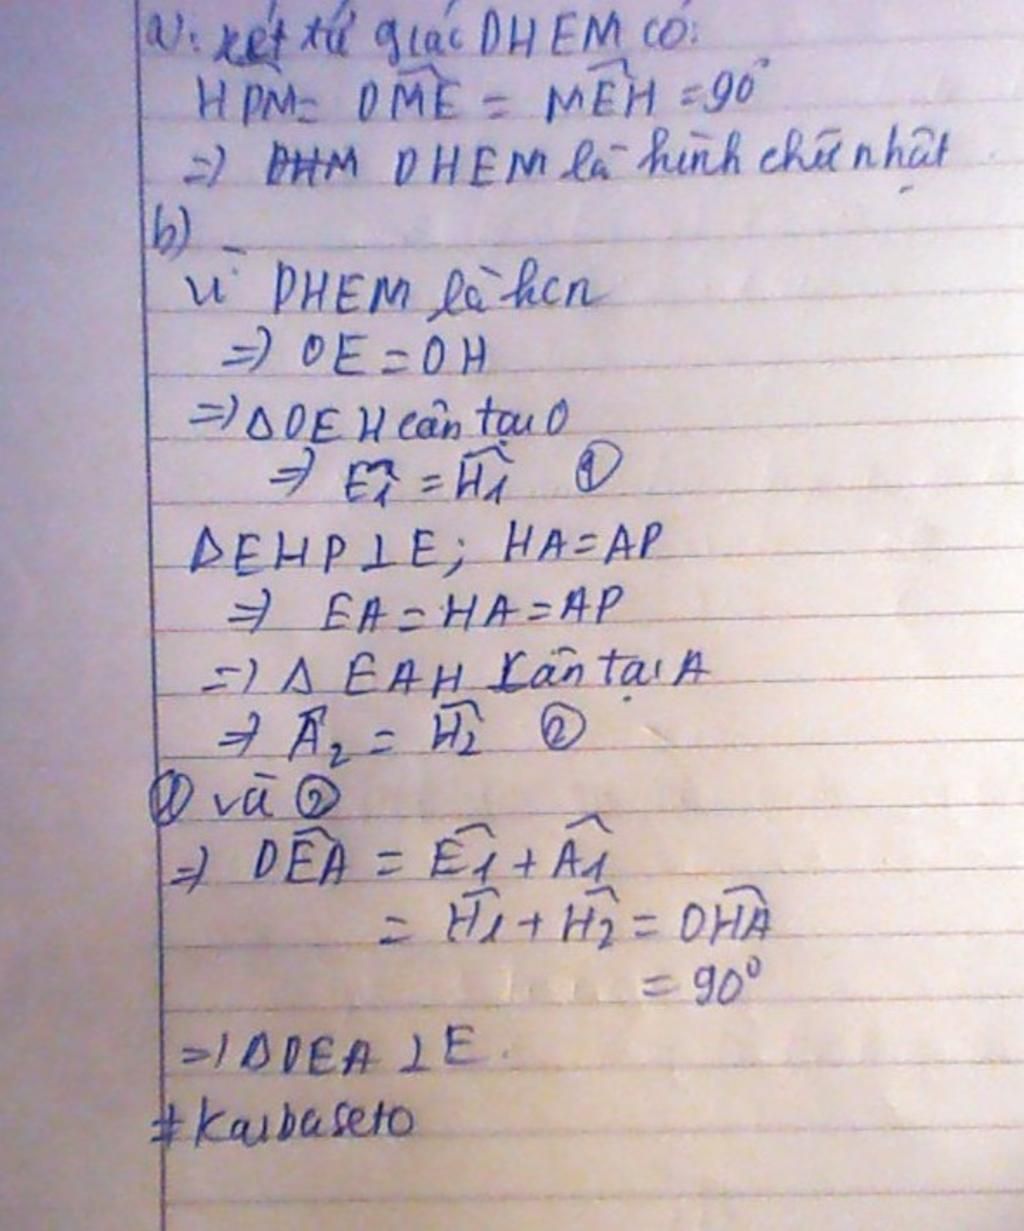 a): xét tứ giác DHEM có:
HDM = DME = MEH = 90°
=> DHM DHEM là hình chữ nhật
b)
vì DHEM là hcn
=> OE = OH
=> Δ OEH cân tại O
=> Ê1 = Ĥ1 ①
Δ EHP ⊥ E; HA = AP
=> EA = HA = AP
=> Δ EAH cân tại A
=> Â2 = Ĥ2 ②
① và ②
=> DEA = Ê1 + Â1
= Ĥ1 + Ĥ2 = OHA
= 90°
=> Δ DEA ⊥ E.
# Kaibaseto